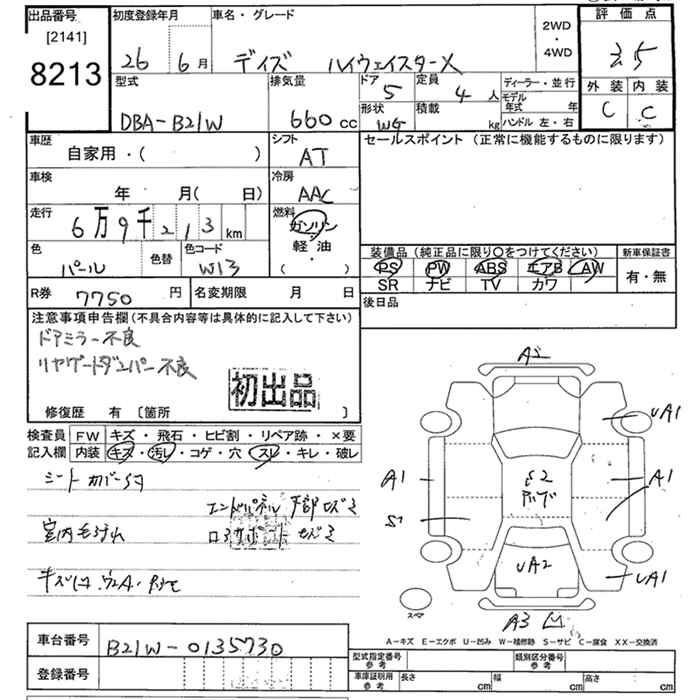 出品番号
[2141]
8213
初度登録年月
26 6月
車名・グレード
デイズ ハイウェイスターX
2WD
・
4WD
評価点
3.5
外装 内装
C C
型式
DBA-B21W
排気量
660 cc
ドア
5
定員
4 人
形状
WG
積載
kg
ディーラー・並行
モデル年式 年
ハンドル 左・右
車歴
自家用・( )
シフト
AT
セールスポイント(正常に機能するものに限ります)
車検
年 月( 日)
冷房
AAC
走行
6万9千213 km
燃料
ガソリン
軽・油
( )
色
パール
色替
色コード
W13
装備品(純正品に限り○をつけてください)
PS PW ABS エアB AW
SR ナビ TV カワ
新車保証書
有・無
R券 7750 円
名変期限 月 日
後日品
注意事項申告欄(不具合内容等は具体的に記入して下さい)
ドアミラー不良
リヤゲートダンパー不良
初出品
修復歴 有 〔箇所 〕
検査員記入欄
FW キズ・飛石・ヒビ割・リペア跡・×要
内装 キズ・汚レ・コゲ・穴・スレ・キレ・破レ
シートカバー
エンドパネル 下部
室内
A2
UA1
A1
S2
A1
S1
UA2
UA1
A3
スペア
A-キズ E-エクボ U-凹み W-補修跡 S-サビ C-腐食 XX-交換済
車台番号 B21W-0135730
登録番号
型式指定番号 参考
類別区分番号 参考
車庫証明用 参考
長さ cm
幅 cm
高さ cm